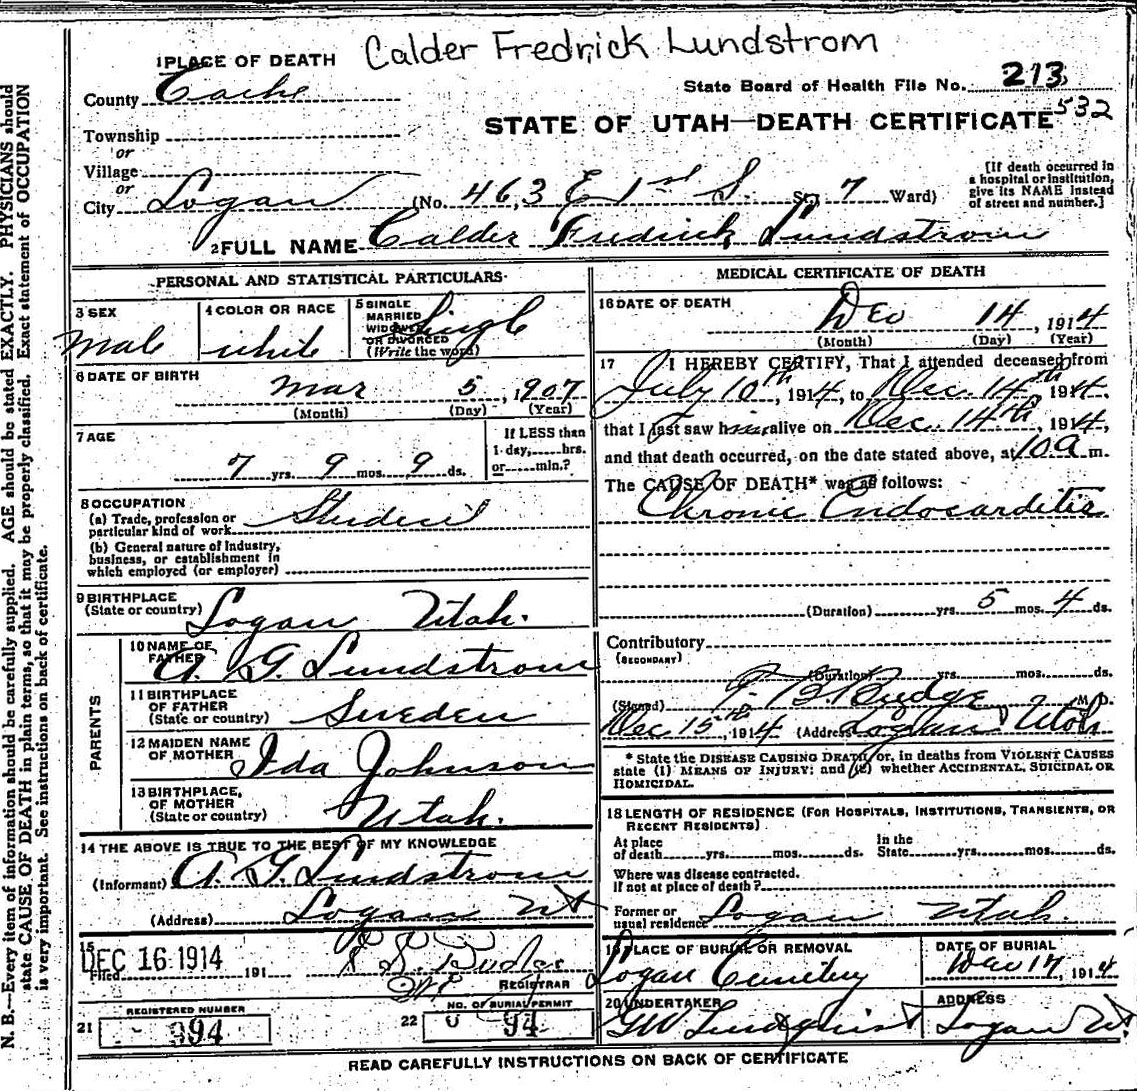 Calder Fredrick Lundstrom
1 PLACE OF DEATH
State Board of Health File No. 213
532
County Cache
STATE OF UTAH—DEATH CERTIFICATE
Township
or
Village
or
City Logan (No. 463 E 1st S. St.; 7 Ward)
[If death occurred in
a hospital or institution,
give its NAME instead
of street and number.]
2 FULL NAME Calder Fredrick Lundstrom
PERSONAL AND STATISTICAL PARTICULARS
3 SEX
Male
4 COLOR OR RACE
white
5 SINGLE
MARRIED
WIDOWED
OR DIVORCED
(Write the word)
Single
6 DATE OF BIRTH
Mar 5, 1907
(Month) (Day) (Year)
7 AGE
7 yrs. 9 mos. 9 ds.
If LESS than
1 day,.....hrs.
or.....min.?
8 OCCUPATION
(a) Trade, profession or
particular kind of work Student
(b) General nature of industry,
business, or establishment in
which employed (or employer)
9 BIRTHPLACE
(State or country) Logan Utah.
PARENTS
10 NAME OF
FATHER
A. G. Lundstrom
11 BIRTHPLACE
OF FATHER
(State or country) Sweden
12 MAIDEN NAME
OF MOTHER Ida Johnson
13 BIRTHPLACE,
OF MOTHER
(State or country) Utah.
14 THE ABOVE IS TRUE TO THE BEST OF MY KNOWLEDGE
(Informant) A. G. Lundstrom
(Address) Logan Ut
15
Filed DEC 16 1914 191
REGISTRAR
21 REGISTERED NUMBER
394
22 NO. OF BURIAL PERMIT
94
MEDICAL CERTIFICATE OF DEATH
16 DATE OF DEATH
Dec 14, 1914
(Month) (Day) (Year)
17 I HEREBY CERTIFY, That I attended deceased from
July 10th, 1914, to Dec. 14th 1914,
that I last saw him alive on Dec. 14th, 1914,
and that death occurred, on the date stated above, at 10 a m.
The CAUSE OF DEATH* was as follows:
Chronic Endocarditis
(Duration) yrs. 5 mos. 4 ds.
Contributory
(SECONDARY)
(Duration) yrs. mos. ds.
(Signed) T. B. Budge M.D.
Dec 15th, 1914 (Address) Logan Utah
* State the DISEASE CAUSING DEATH, or, in deaths from VIOLENT CAUSES
state (1) MEANS OF INJURY; and (2) whether ACCIDENTAL, SUICIDAL OR
HOMICIDAL.
18 LENGTH OF RESIDENCE (FOR HOSPITALS, INSTITUTIONS, TRANSIENTS, OR
RECENT RESIDENTS)
At place
of death yrs. mos. ds.
In the
State yrs. mos. ds.
Where was disease contracted.
if not at place of death?
Former or
usual residence Logan Utah.
19 PLACE OF BURIAL OR REMOVAL
Logan Cemetery
DATE OF BURIAL
Dec 17, 1914
20 UNDERTAKER
GW Lundquist
ADDRESS
Logan Ut.
READ CAREFULLY INSTRUCTIONS ON BACK OF CERTIFICATE
N. B.—Every item of information should be carefully supplied. AGE should be stated EXACTLY. PHYSICIANS should
state CAUSE OF DEATH in plain terms, so that it may be properly classified. Exact statement of OCCUPATION
is very important. See instructions on back of certificate.